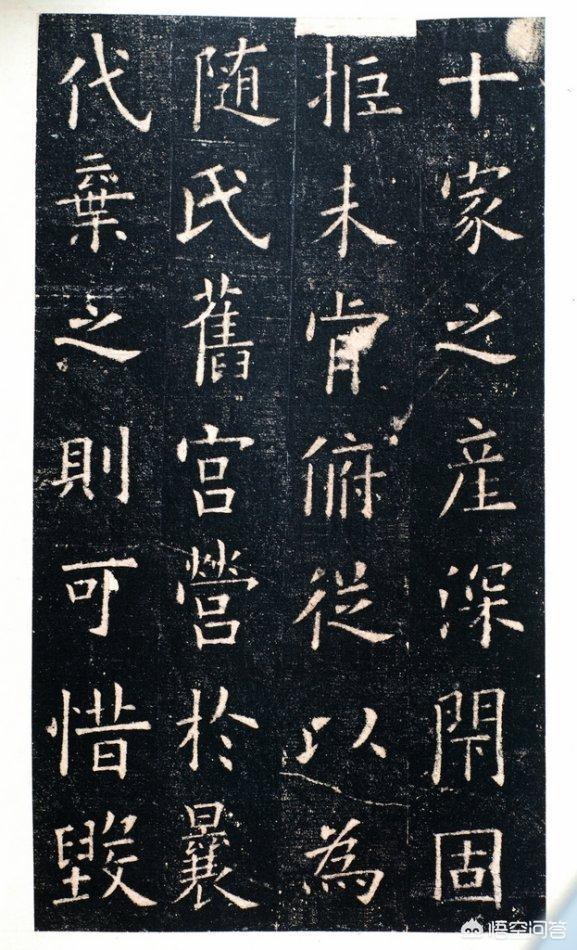 十家之産深閇固
拒未肯俯從以為
随氏舊宮營於曩
代棄之則可惜毀
悟空问答